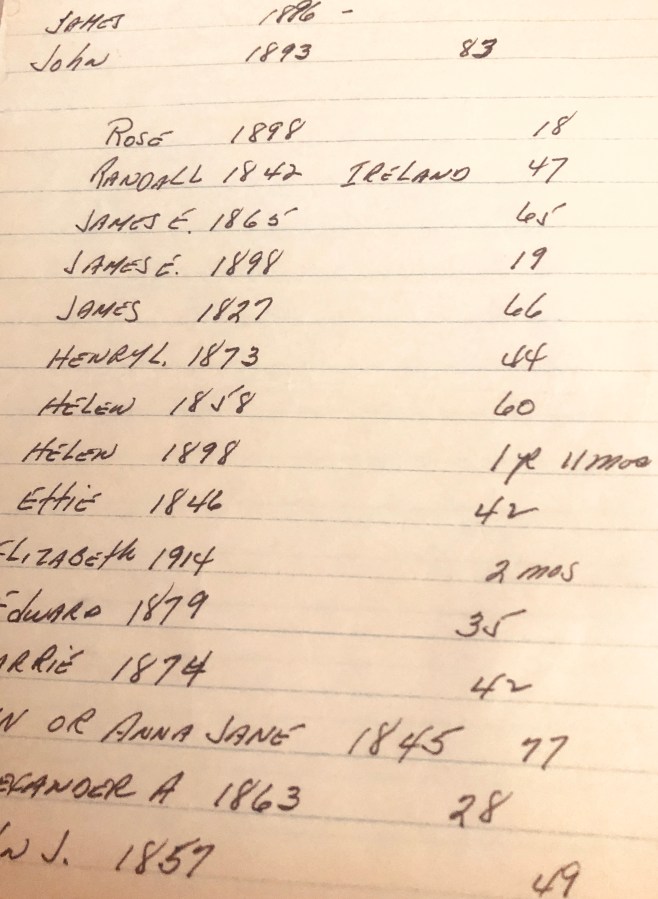 JAMES 1896 -
John 1893 83
ROSE 1898 18
RANDALL 1842 IRELAND 47
JAMES E. 1865 65
JAMES E. 1898 19
JAMES 1827 66
HENRY L. 1873 44
HELEN 1858 60
HELEN 1898 1 yR 11 mos
Effie 1846 42
ELIZABEth 1914 2 mos
EdWARD 1879 35
ARRIE 1874 42
N OR ANNA JANE 1845 77
EXANDER A 1863 28
N J. 1857 49